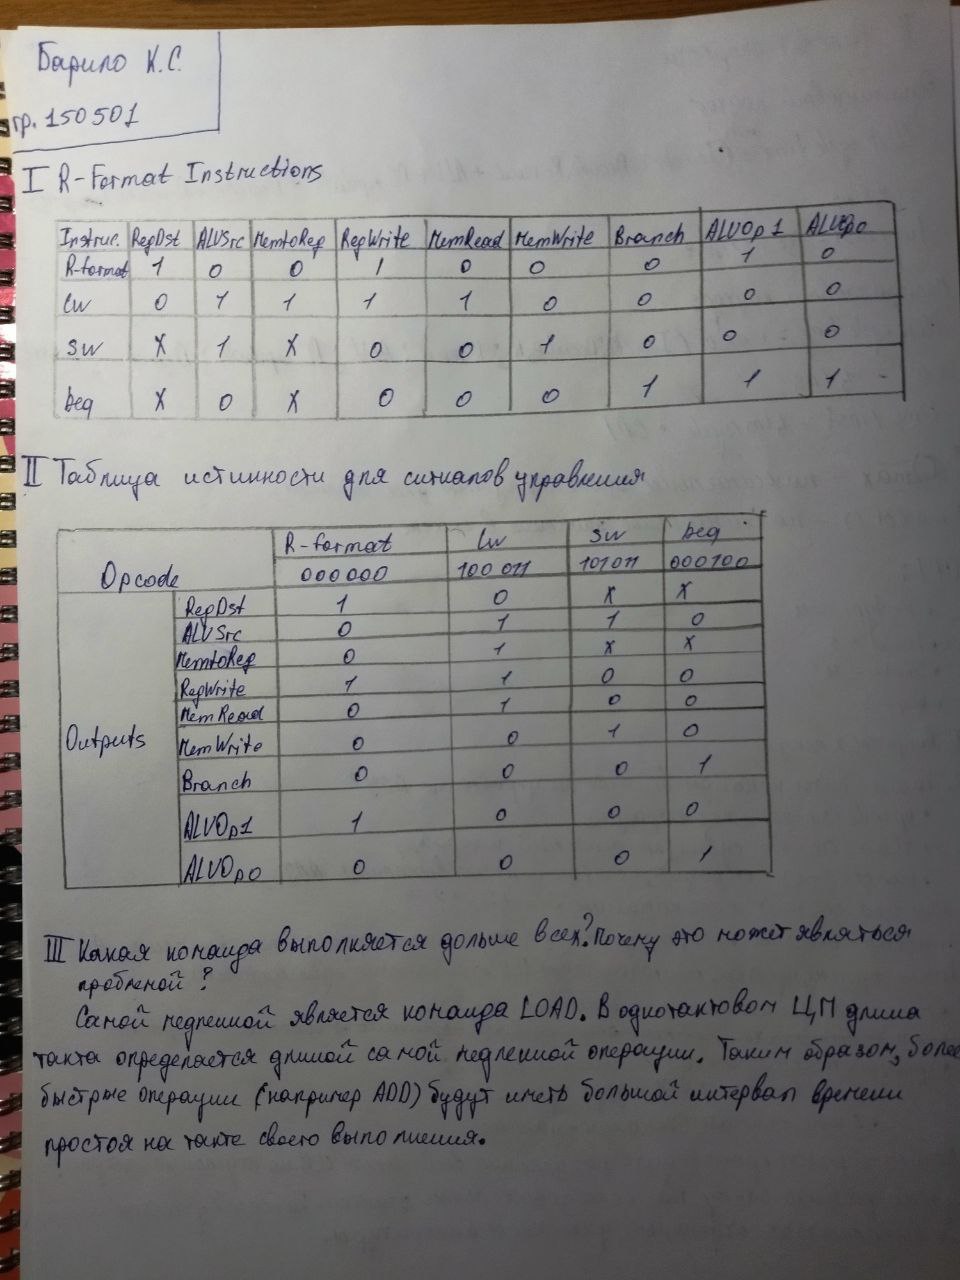 Барило К.С.
гр. 150501
I R-Format Instructions
Instruc. RegDst ALUSrc MemtoReg RegWrite MemRead MemWrite Branch ALUOp1 ALUOp0
R-format 1 0 0 1 0 0 0 1 0
lw 0 1 1 1 1 0 0 0 0
sw X 1 X 0 0 1 0 0 0
beq X 0 X 0 0 0 1 1 1
II Таблица истинности для сигналов управления
R-format lw sw beq
Opcode 000000 100011 101011 000100
RegDst 1 0 X X
ALUSrc 0 1 1 0
MemtoReg 0 1 X X
RegWrite 1 1 0 0
MemRead 0 1 0 0
Outputs MemWrite 0 0 1 0
Branch 0 0 0 1
ALUOp1 1 0 0 0
ALUOp0 0 0 0 1
III Какая команда выполняется дольше всех? Почему это может являться
проблемой?
Самой медленной является команда LOAD. В однотактовом ЦП длина
такта определается длиной самой медленной операции. Таким образом, более
быстрые операции (например ADD) будут иметь большой интервал времени
простоя на такте своего выполнения.